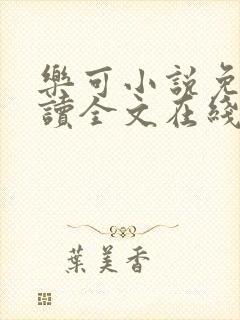 樂可小說免
讀全文在綫
葉美香